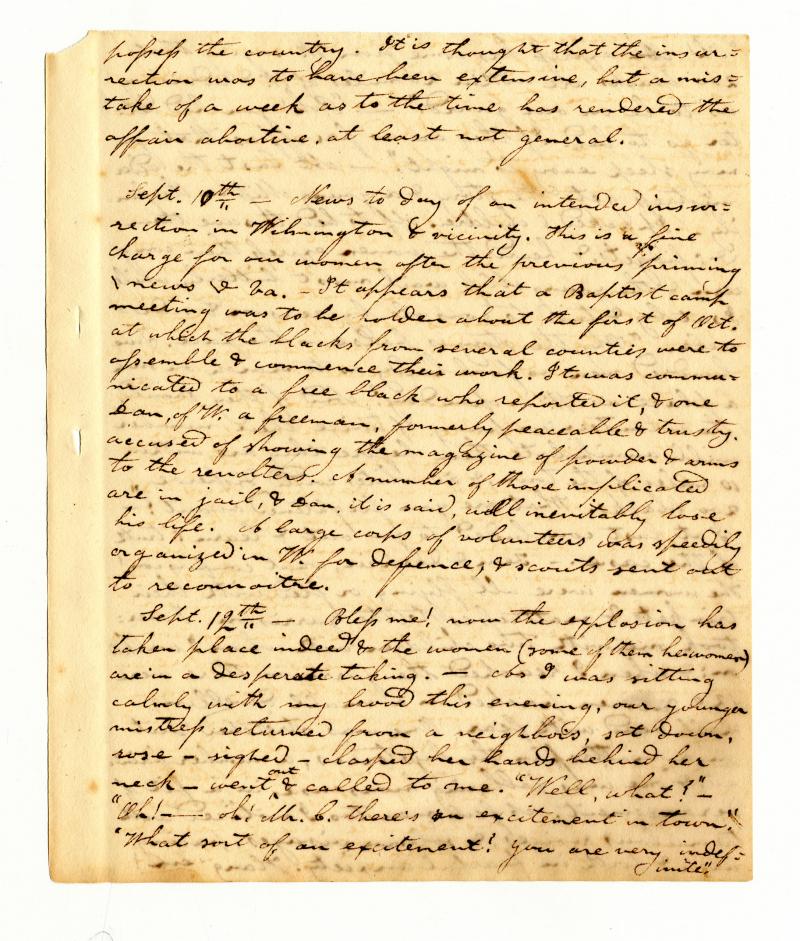 possess the country. It is thought that the insur=
rection was to have been extensive, but a mis=
take of a week as to the time has rendered the
affair abortive, at least not general.
Sept. 10th — News to day of an intended insur=
rection in Wilmington & vicinity. This is a fine
charge for our women after the previous priming
news & Va. — It appears that a Baptist camp
meeting was to be holden about the first of Oct.
at which the blacks from several counties were to
assemble & commence their work. It was commu=
nicated to a free black who reported it, & one
Dan, of W. a freeman, formerly peaceable & trusty.
accused of showing the magazine of powder & arms
to the revolters. A number of those implicated
are in jail, & Dan, it is said, will inevitably lose
his life. A large corps of volunteers was speedily
organized in W. for defence, & scouts sent out
to reconnoitre.
Sept. 12th — Bless me! now the explosion has
taken place indeed & the women (some of them hewomen)
are in a desperate taking. — As I was sitting
calmly with my brood this evening, our younger
mistress returned from a neighbors, sat down,
rose — sighed — clasped her hands behind her
neck — went out & called to me. "Well, what?" —
"Oh! — oh! Mr. C. there's an excitement in town."
"What sort of an excitement? you are very indef=
inite."